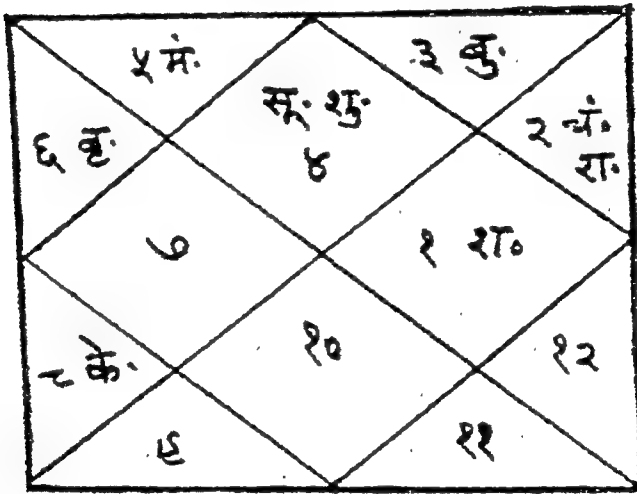 ५ मं.
३ बु.
सू. शु.
४
६ बृ.
२ चं.
रा.
७
१ श०
१०
८ के.
१२
९
११